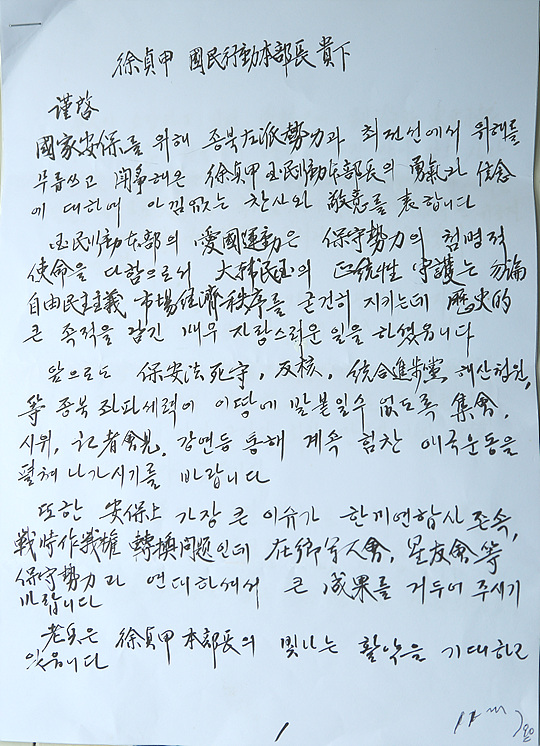 徐貞甲 國民行動本部長 貴下
謹啓
國家安保를 위해 종북左派勢力과 최전선에서 위해를
무릅쓰고 鬪爭해온 徐貞甲 国民行動本部長의 勇氣과 信念
에 대하여 아낌없는 찬사와 敬意를 表합니다
国民行動本部의 愛國運動은 保守勢力의 첨병적
使命을 다함으로써 大韓民国의 正統性 守護는 勿論
自由民主主義 市場経濟秩序를 굳건히 지키는데 歷史的
큰 족적을 남긴 매우 자랑스러운 일을 하셨읍니다
앞으로도 保安法死守, 反核, 統合進步黨 해산청원,
等 종북 좌파세력이 이땅에 발붙일수 없도록 集會,
시위, 記者會見, 강연등 통해 계속 힘찬 애국운동을
펼쳐 나가시기를 바랍니다
또한 安保上 가장 큰 이슈가 한미연합사 존속,
戰時作戰權 轉換問題인데 在鄕軍人會, 星友會, 等
保守勢力과 연대하셔서 큰 成果를 거두어 주시기
바랍니다
老兵은 徐貞甲 本部長의 빛나는 활약을 기대하고
있읍니다
1